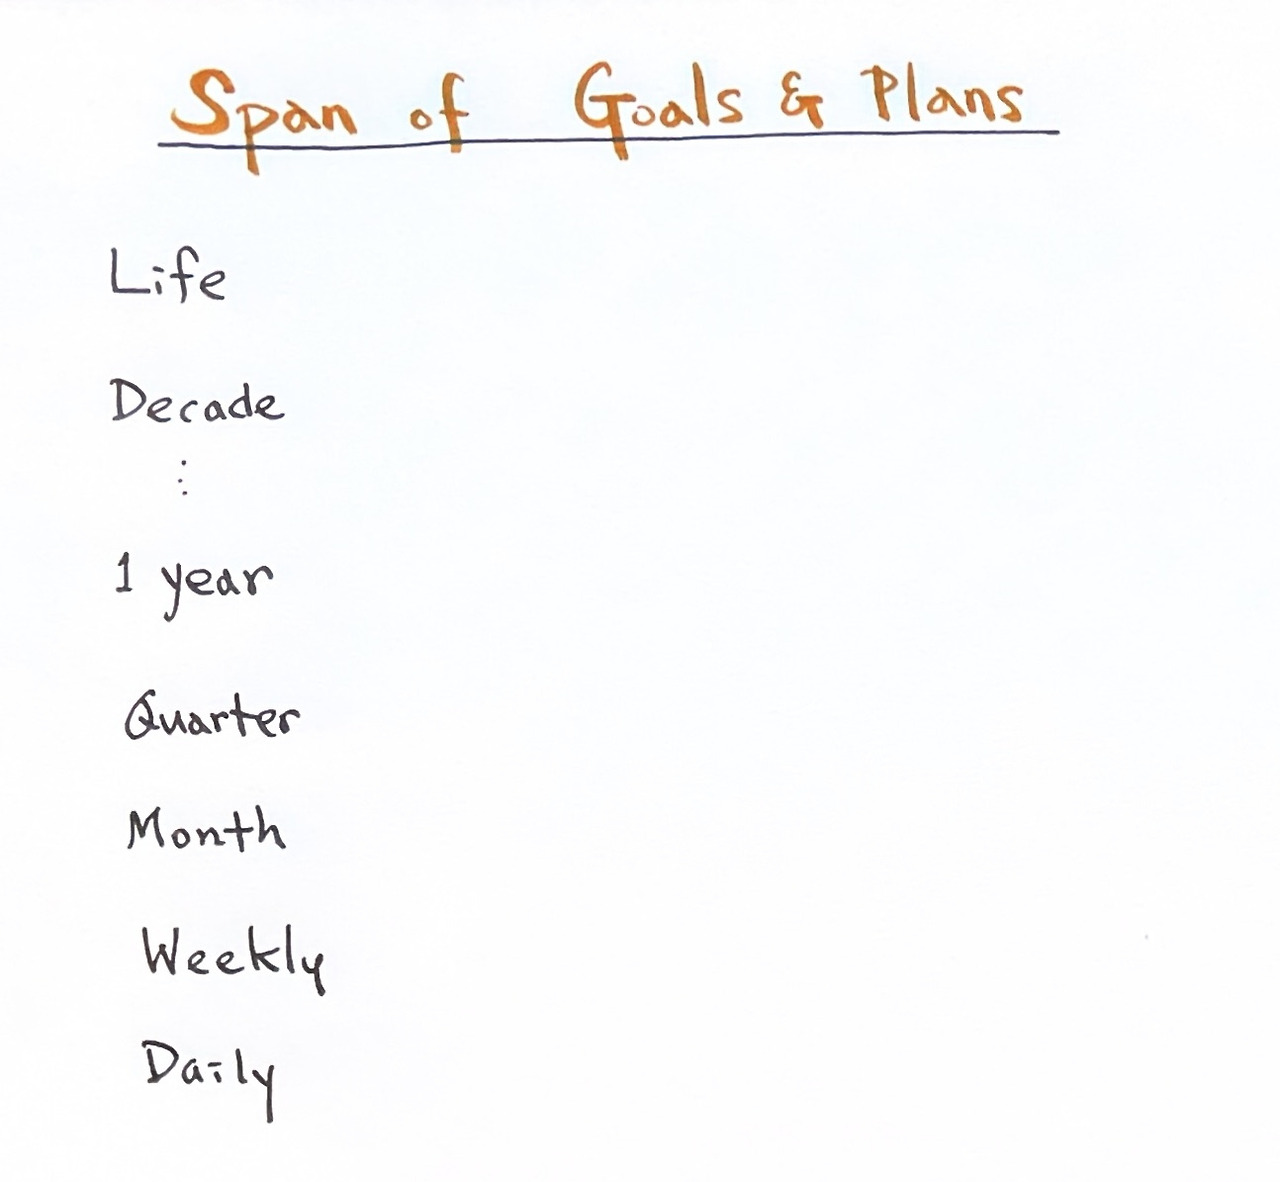 Span of Goals & Plans
Life
Decade
⋮
1 year
Quarter
Month
Weekly
Daily